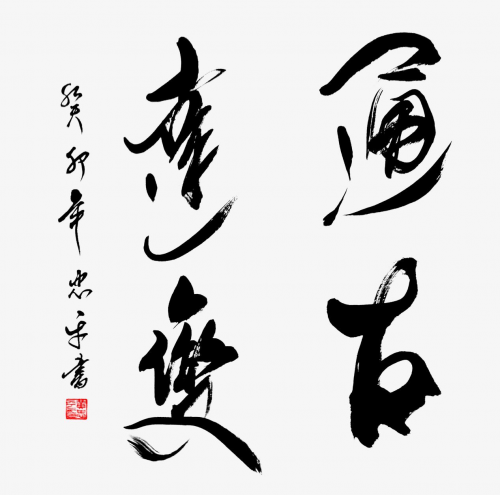 通古
達變
癸卯年忠平書